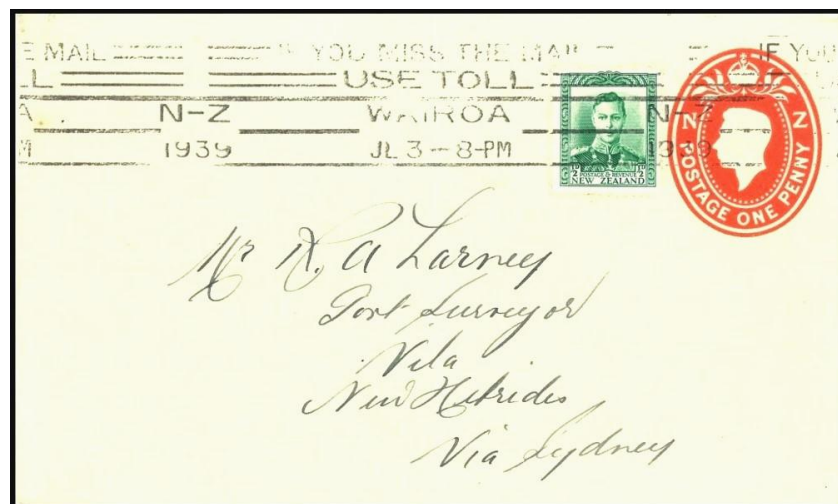 E MAIL IF YOU MISS THE MAIL IF YOU
LL USE TOLL
A N-Z WAIROA N-Z
M 1939 JL 3 - 8-PM 1939
½ POSTAGE & REVENUE ½
NEW ZEALAND
N Z
POSTAGE ONE PENNY
Mr R. A Larney
Govt Surveyor
Vila
New Hebrides
Via Sydney